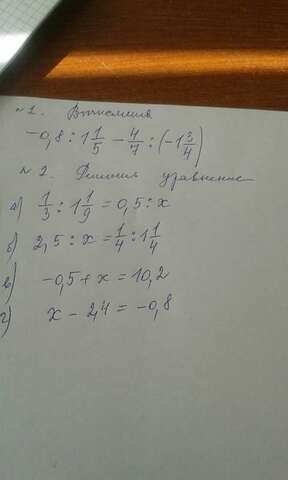 №1. Вычислить
-0,8 : 1 1/5 - 4/7 : (-1 3/4)
№2. Решить уравнение
а) 1/3 : 1 1/9 = 0,5 : x
б) 2,5 : x = 1/4 : 1 1/4
в) -0,5 + x = 10,2
г) x - 2,4 = -0,8